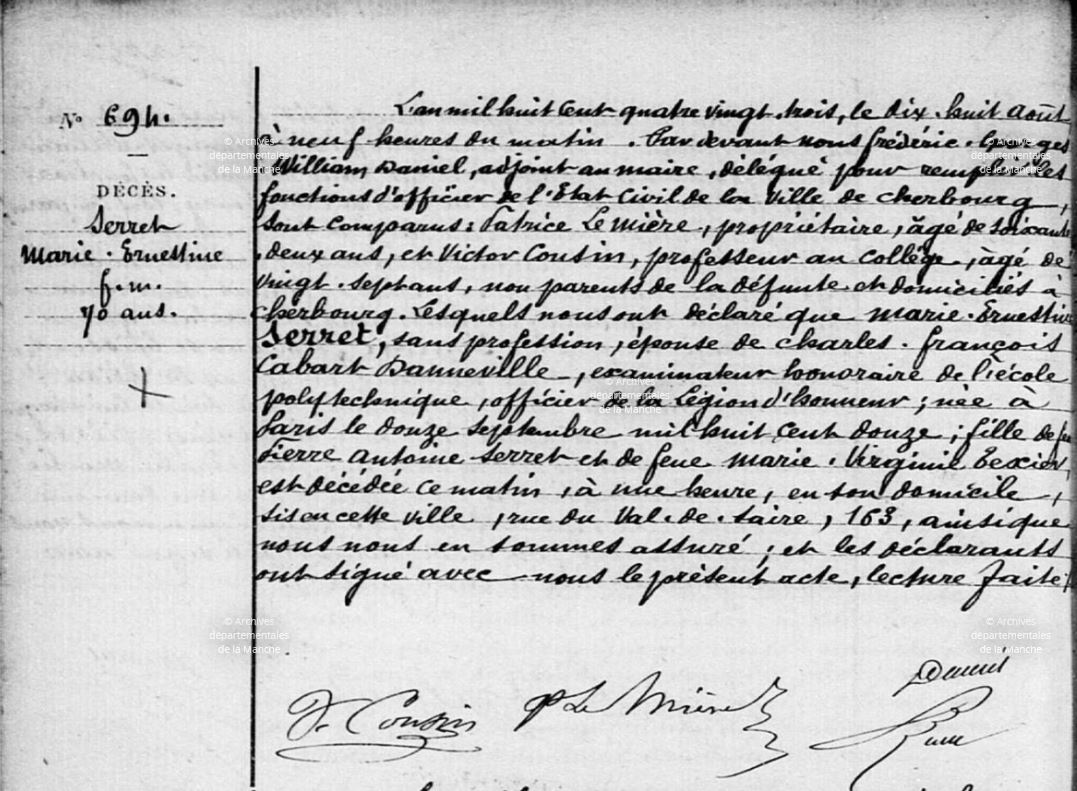 N° 694.
DÉCÈS.
Serret
Marie-Ernestine
f. m.
70 ans.
L'an mil huit cent quatre vingt-trois, le dix-huit août
à neuf heures du matin. Par devant nous frédéric-Georges
William Daniel, adjoint au maire, délégué pour remplir les
fonctions d'officier de l'Etat Civil de la Ville de Cherbourg,
sont comparus: Patrice Le Mière, propriétaire, âgé de soixante
deux ans, et Victor Cousin, professeur au Collège, âgé de
vingt-sept ans, non parents de la défunte et domiciliés à
Cherbourg. Lesquels nous ont déclaré que Marie-Ernestine
Serret, sans profession, épouse de Charles-François
Cabart Danneville, examinateur honoraire de l'école
polytechnique, officier de la Légion d'honneur; née à
Paris le douze septembre mil huit cent douze; fille de feu
Pierre Antoine Serret et de feue Marie-Virginie Texier,
est décédée ce matin, à une heure, en son domicile,
sis en cette ville, rue du Val-de-Saire, 163, ainsi que
nous nous en sommes assuré; et les déclarants
ont signé avec nous le présent acte, lecture faite.
V. Cousin P Le Mière Daniel
© Archives
départementales
de la Manche
© Archives
départementales
de la Manche
© Archives
départementales
de la Manche
© Archives
départementales
de la Manche
© Archives
départementales
de la Manche